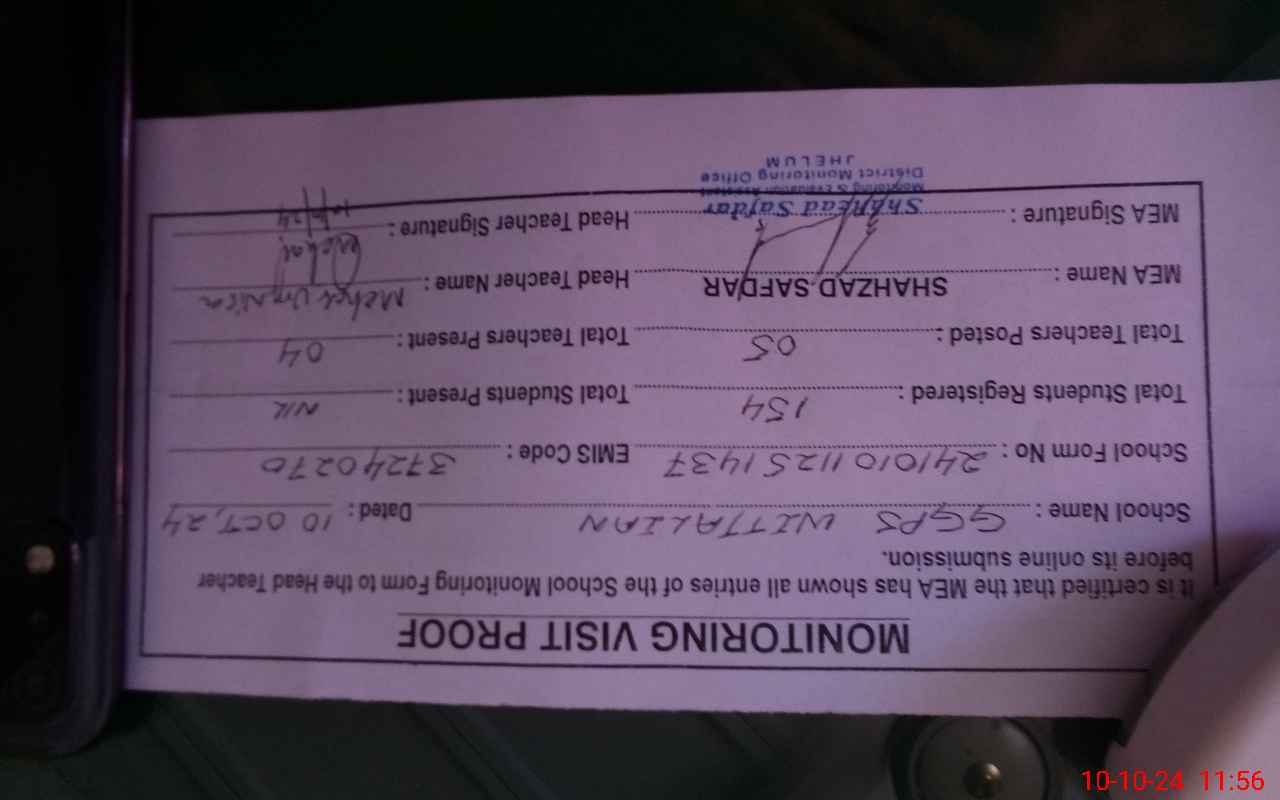 MONITORING VISIT PROOF
It is certified that the MEA has shown all entries of the School Monitoring Form to the Head Teacher
before its online submission.
School Name : GGPS WITTALIAN Dated : 10 OCT, 24
School Form No : 24101011251437 EMIS Code : 37240270
Total Students Registered : 154 Total Students Present : Nil
Total Teachers Posted : 05 Total Teachers Present : 04
MEA Name : SHAHZAD SAFDAR Head Teacher Name :
MEA Signature : Head Teacher Signature :
Shahzad Safdar
Monitoring & Evaluation Assistant
District Monitoring Office
JHELUM
10-10-24 11:56